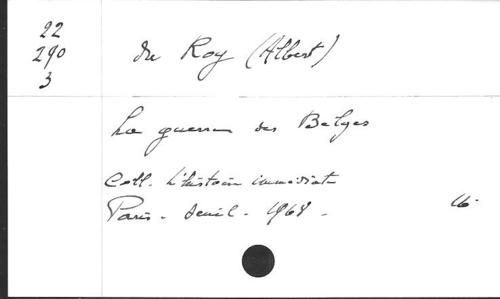 22
290
3
du Roy (Albert)
La guerre des Belges
Coll. L'histoire immédiate
Paris - Seuil - 1968 -
16.